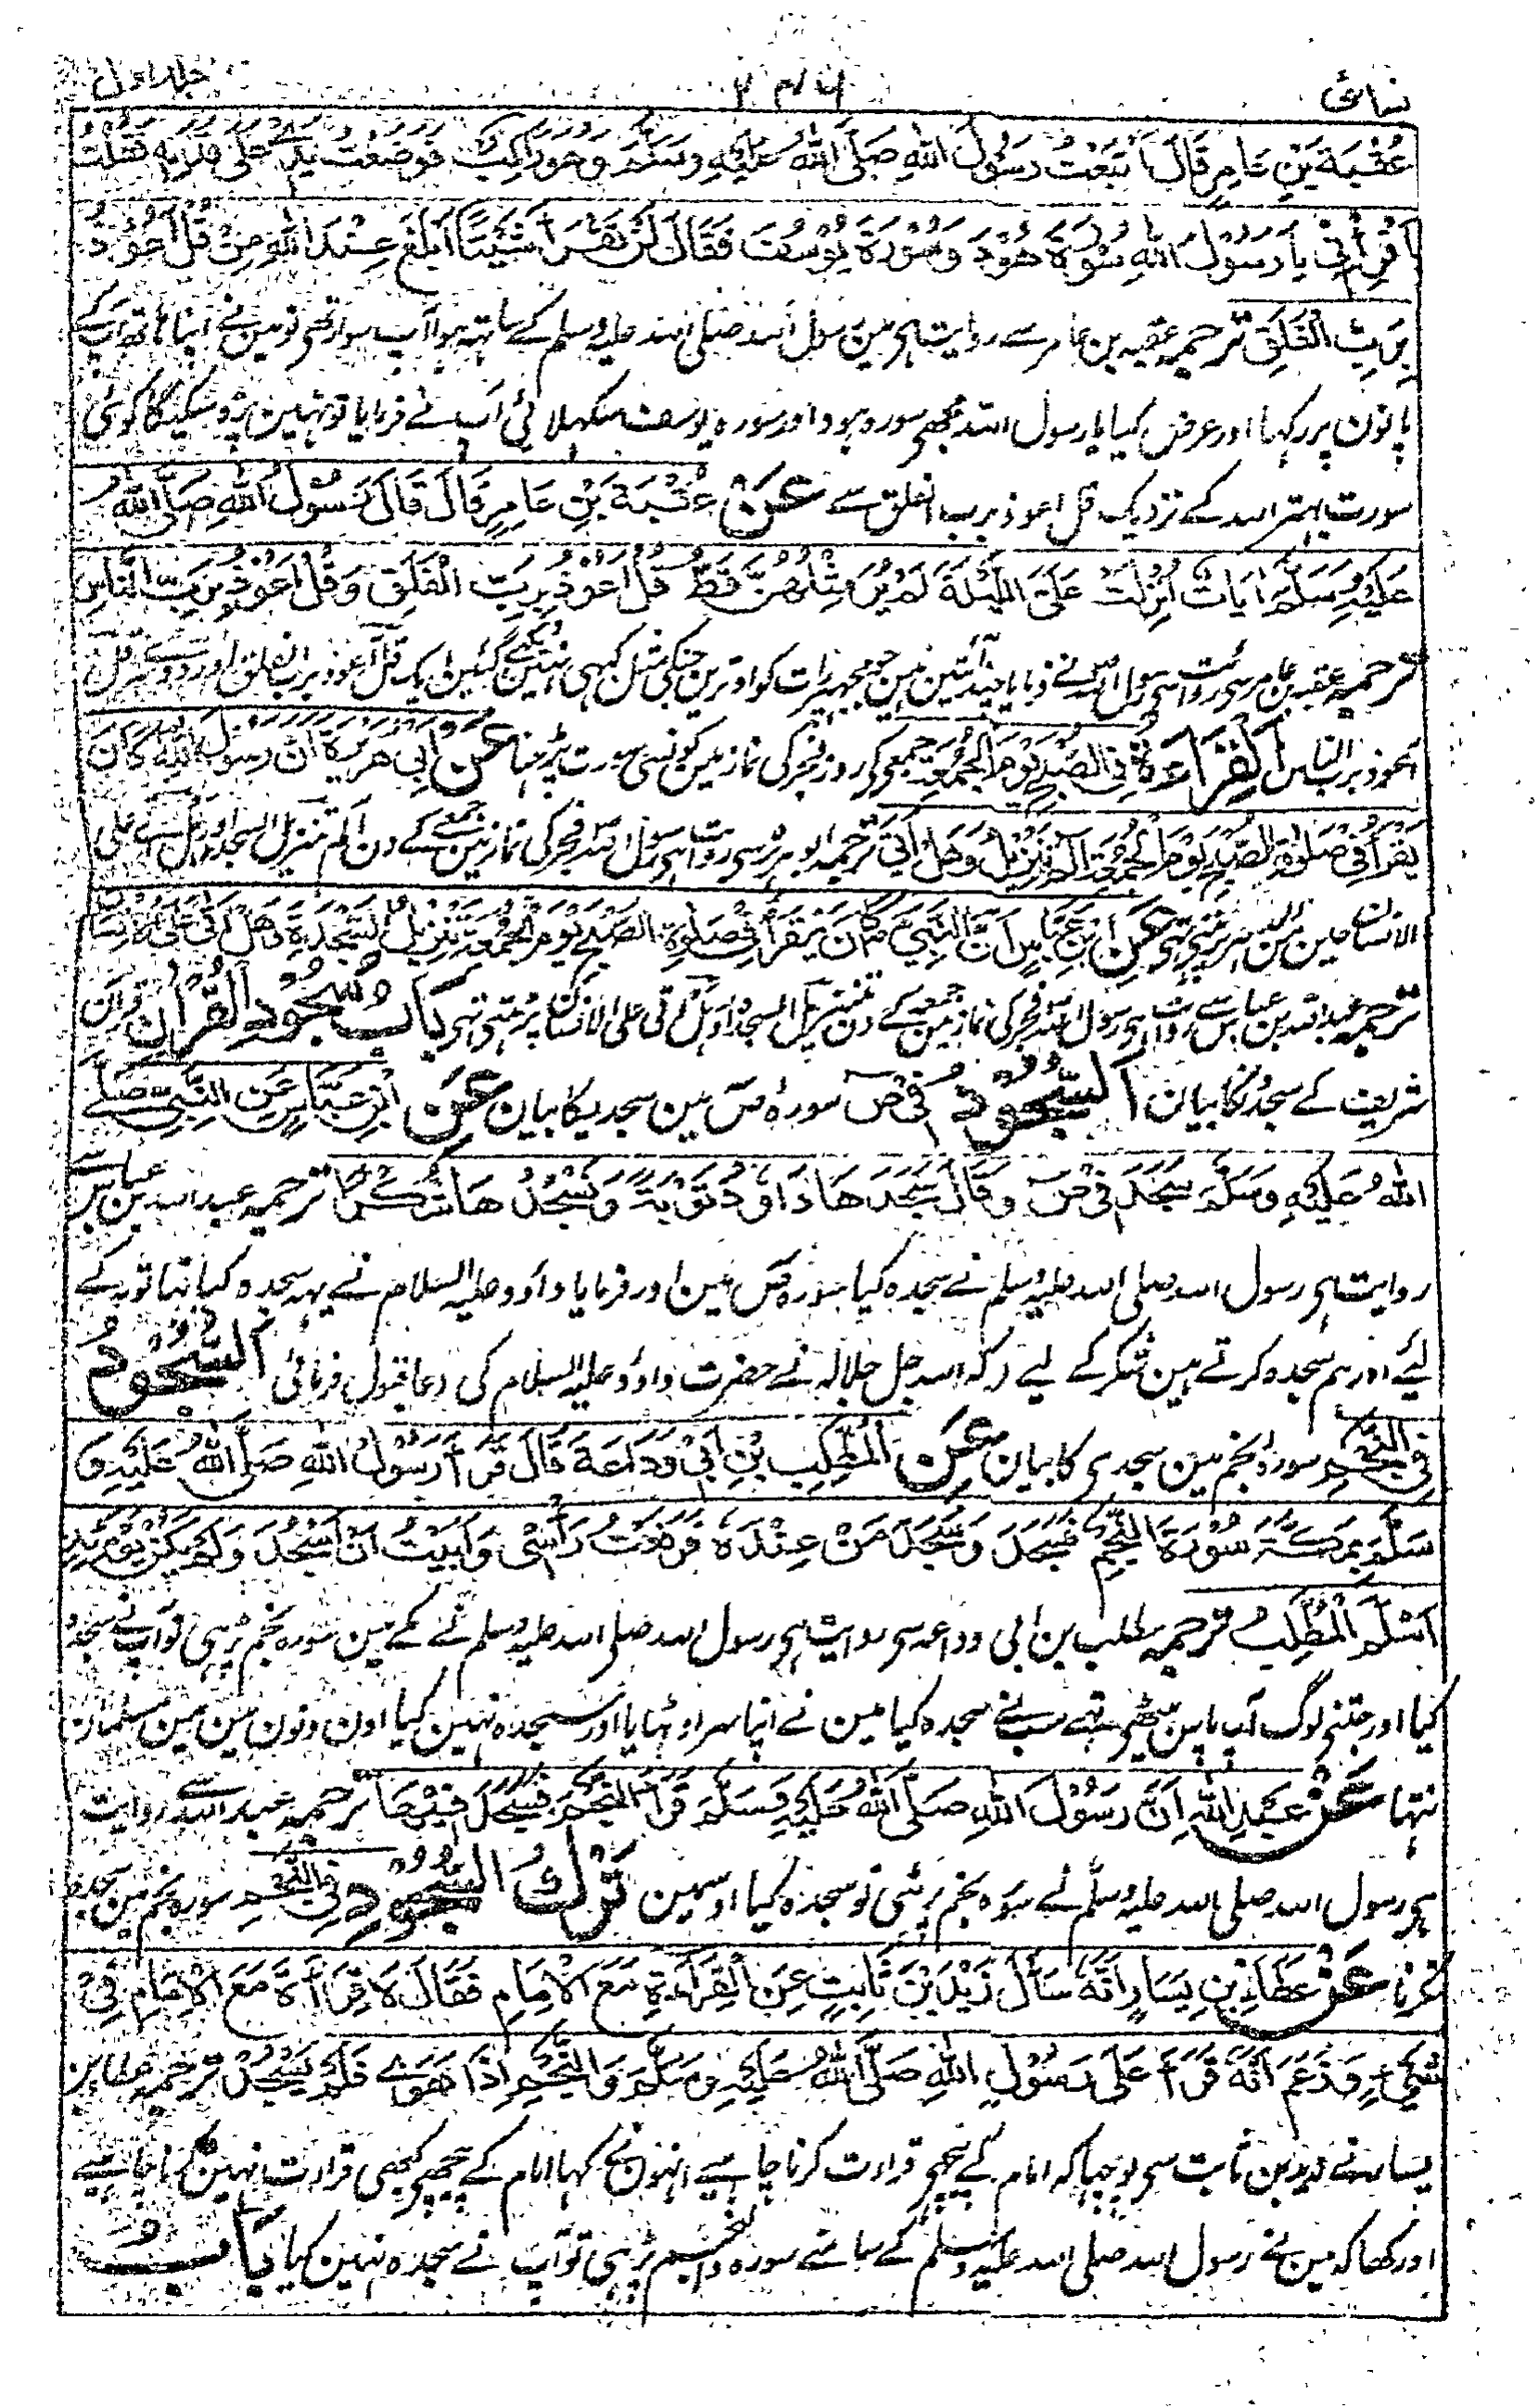 نسائی جلد اول
عُقْبَةَ بْنِ عَامِرٍ قَالَ اتَّبَعْتُ رَسُوْلَ اللهِ صَلَّى اللهُ عَلَيْهِ وَسَلَّمَ وَهُوَ رَاكِبٌ فَوَضَعْتُ يَدِيْ عَلٰى قَدَمِهٖ فَقُلْتُ
اَقْرِأْنِيْ يَا رَسُوْلَ اللهِ سُوْرَةَ هُوْدَ وَسُوْرَةَ يُوْسُفَ فَقَالَ لَنْ تَقْرَأَ شَيْئًا اَبْلَغَ عِنْدَ اللهِ مِنْ قُلْ اَعُوْذُ
بِرَبِّ الْفَلَقِ ترجمہ عقبہ بن عامر سے روایت ہی مین رسول اللہ صلی اللہ علیہ وسلم کے ساتھ ہوا آپ سوار تھی تو مین نے اپنا ہاتھ آپ کے
پانون پر رکھا اور عرض کیا یا رسول اللہ مجھے سورہ ہود اور سورہ یوسف سکھلائی آپ نے فرمایا تو نہین پڑہ سکیگا کوئی
سورت بہتر اللہ کے نزدیک قل اعوذ برب الفلق سے عَنْ عُقْبَةَ بْنِ عَامِرٍ قَالَ قَالَ رَسُوْلُ اللهِ صَلَّى اللهُ
عَلَيْهِ وَسَلَّمَ اٰيَاتٌ اُنْزِلَتْ عَلَيَّ اللَّيْلَةَ لَمْ يُرَ مِثْلُهُنَّ قَطُّ قُلْ اَعُوْذُ بِرَبِّ الْفَلَقِ وَقُلْ اَعُوْذُ بِرَبِّ النَّاسِ
ترجمہ عقبہ بن عامر سے روایت ہی رسول اللہ نے فرمایا چند آیتین ہین جو مجھپر رات کو اوترین جنکی مثل کبھی نہین دیکھی گئین ایک قل اعوذ برب الفلق اور دوسرے قل
اعوذ برب الناس اَلْقِرَاءَةُ فِي الصُّبْحِ يَوْمَ الْجُمُعَةِ جمعی کی روز فجر کی نماز مین کونسی سورت پڑہنا عَنْ اَبِيْ هُرَيْرَةَ اَنَّ رَسُوْلَ اللهِ كَانَ
يَقْرَأُ فِيْ صَلٰوةِ الصُّبْحِ يَوْمَ الْجُمُعَةِ الٓمّٓ تَنْزِيْلُ وَهَلْ اَتٰى ترجمہ ابو ہریرہ سے روایت ہی رسول اللہ فجر کی نماز مین جمعے کے دن الم تنزیل السجدہ اور ہل اتے علی
الانسان حین من الدہر پڑہتی تہی عَنِ ابْنِ عَبَّاسٍ اَنَّ النَّبِيَّ كَانَ يَقْرَأُ فِيْ صَلٰوةِ الصُّبْحِ يَوْمَ الْجُمُعَةِ تَنْزِيْلُ السَّجْدَةِ وَهَلْ اَتٰى عَلَى الْاِنْسَانِ
ترجمہ عبد اللہ بن عباس سے روایت ہی رسول اللہ فجر کی نماز مین جمعے کے دن تنزیل السجدہ اور ہل اتی علی الانسان پڑہتی تہی بَابُ سُجُوْدِ الْقُرْاٰنِ قران
شریف کے سجدونکا بیان اَلسُّجُوْدُ فِيْ صٓ سورۂ ص مین سجدیکا بیان عَنِ ابْنِ عَبَّاسٍ عَنِ النَّبِيِّ صَلَّى
اللهُ عَلَيْهِ وَسَلَّمَ سَجَدَ فِيْ صٓ وَقَالَ سَجَدَهَا دَاوٗدُ تَوْبَةً وَنَسْجُدُهَا شُكْرًا ترجمہ عبد اللہ بن عباس سے
روایت ہی رسول اللہ صلی اللہ علیہ وسلم نے سجدہ کیا سورہ ص مین اور فرمایا داوٗد علیہ السلام نے یہہ سجدہ کیا تہا توبہ کے
لیے اور ہم سجدہ کرتے ہین شکر کے لیے کہ اللہ جل جلالہ نے حضرت داوٗد علیہ السلام کی دعا قبول فرمائی اَلسُّجُوْدُ
فِي النَّجْمِ سورۂ نجم مین سجدی کا بیان عَنِ الْمُطَّلِبِ بْنِ اَبِيْ وَدَاعَةَ قَالَ قَرَأَ رَسُوْلُ اللهِ صَلَّى اللهُ عَلَيْهِ وَ
سَلَّمَ بِمَكَّةَ سُوْرَةَ النَّجْمِ فَسَجَدَ وَسَجَدَ مَنْ عِنْدَهٗ فَرَفَعْتُ رَأْسِيْ وَاَبَيْتُ اَنْ اَسْجُدَ وَلَمْ يَكُنْ يَوْمَئِذٍ
اَسْلَمَ الْمُطَّلِبُ ترجمہ مطلب بن ابی وداعہ سے روایت ہی رسول اللہ صلی اللہ علیہ وسلم نے مکے مین سورہ نجم پڑہی تو آپنے سجدہ
کیا اور جتنی لوگ آپ پاس بیٹھی تہے سب نے سجدہ کیا مین نے اپنا سر اوٹہایا اور سجدہ نہین کیا اون دنون مین مین مسلمان
نتہا عَنْ عَبْدِ اللهِ اَنَّ رَسُوْلَ اللهِ صَلَّى اللهُ عَلَيْهِ وَسَلَّمَ قَرَأَ النَّجْمَ فَسَجَدَ فِيْهَا ترجمہ عبد اللہ سے روایت
ہی رسول اللہ صلی اللہ علیہ وسلم نے سورہ نجم پڑہی تو سجدہ کیا اوسمین تَرْكُ السُّجُوْدِ فِي النَّجْمِ سورہ نجم مین سجدہ
نکرنا عَنْ عَطَاءِ بْنِ يَسَارٍ اَنَّهٗ سَأَلَ زَيْدَ بْنَ ثَابِتٍ عَنِ الْقِرَاءَةِ مَعَ الْاِمَامِ فَقَالَ لَا قِرَاءَةَ مَعَ الْاِمَامِ فِيْ
شَيْءٍ وَزَعَمَ اَنَّهٗ قَرَأَ عَلٰى رَسُوْلِ اللهِ صَلَّى اللهُ عَلَيْهِ وَسَلَّمَ وَالنَّجْمِ اِذَا هَوٰى فَلَمْ يَسْجُدْ ترجمہ عطا بن
یسار نے زید بن ثابت سے پوچہا کہ امام کے پیچھے قراءت کرنا چاہیے انہون نے کہا امام کے پیچھے کچھہ قراءت نہین کرنا چاہیے
اور کہا کہ مین نے رسول اللہ صلی اللہ علیہ وسلم کے سامنے سورہ والنجم پڑہی تو آپ نے سجدہ نہین کیا بَابُ